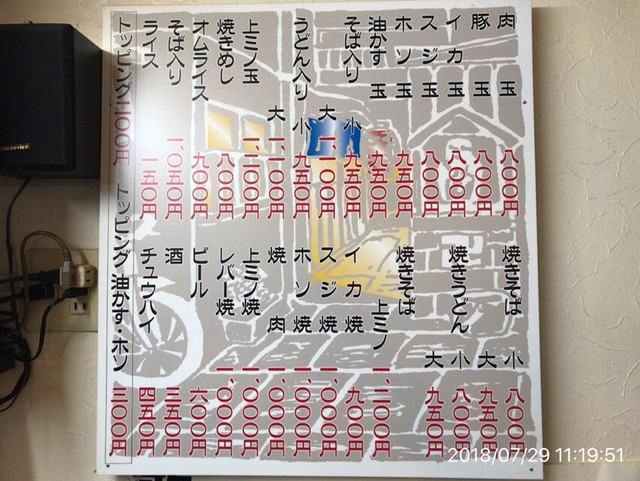 肉玉 八〇〇円
豚玉 八〇〇円
イカ玉 八〇〇円
スジ玉 八〇〇円
ホソ玉 九五〇円
油かす玉 九五〇円
そば入り 小 九五〇円
大 一、一〇〇円
うどん入り 小 九五〇円
大 一、一〇〇円
上ミノ玉
焼きめし 八〇〇円
オムライス 九〇〇円
そば入り 一、〇五〇円
ライス 一五〇円
焼きそば 小 八〇〇円
大 九五〇円
焼きうどん 小 八〇〇円
大 九五〇円
焼きそば 上ミノ 一、二〇〇円
イカ焼 九〇〇円
スジ焼 一、〇〇〇円
ホソ焼 一、〇〇〇円
焼肉 一、〇〇〇円
上ミノ焼 一、〇〇〇円
レバー焼 一、〇〇〇円
ビール 六〇〇円
酒 三五〇円
チュウハイ 四五〇円
トッピング二〇〇円 トッピング 油かす・ホソ 三〇〇円
2018/07/29 11:19:51